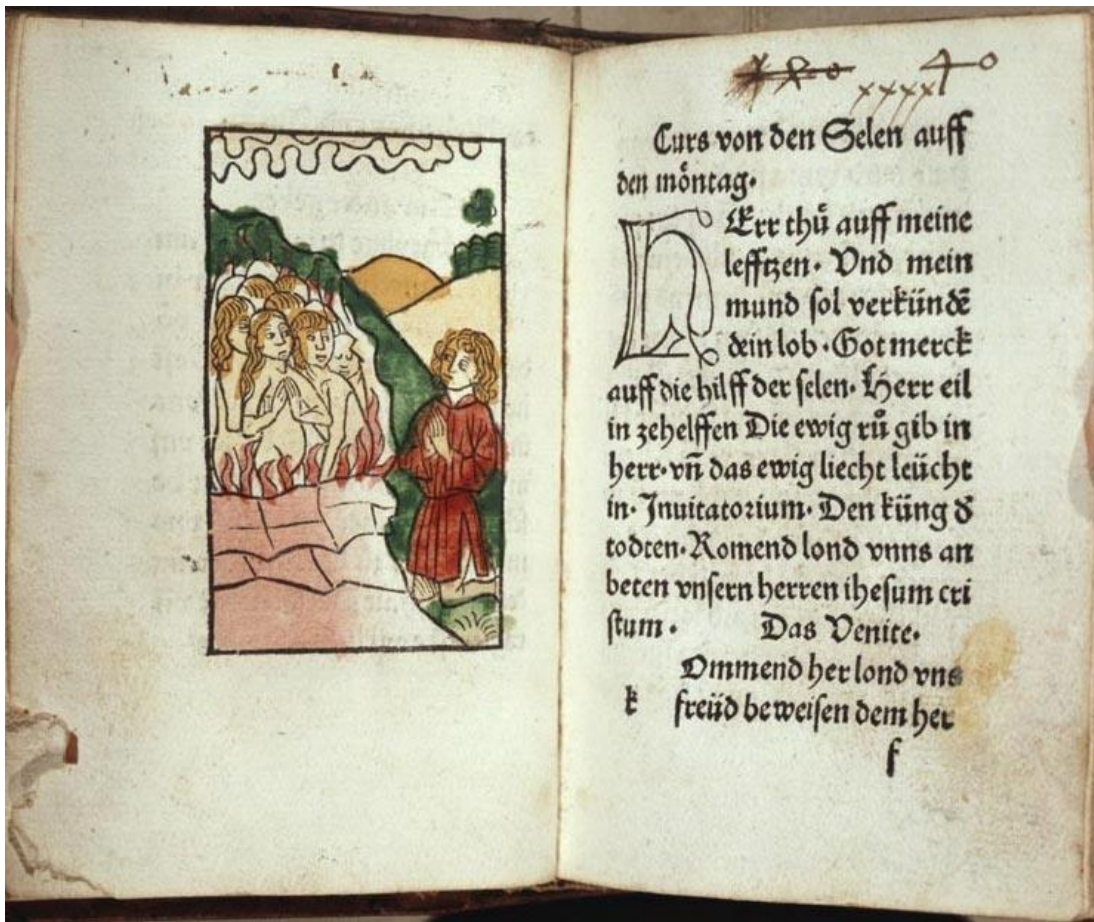 Curs von den Selen auff
den möntag.
HErr thů auff meine
lefftzen. Vnd mein
mund sol verkündē
dein lob. Got merck
auff die hilff der selen. Herr eil
in zehelffen Die ewig rů gib in
herr. vn̄ das ewig liecht leücht
in. Inuitatorium. Den küng d̕
todten. Komend lond vnns an
beten vnsern herren ihesum cri
stum. Das Venite.
Ommend her lond vns
k freüd beweisen dem her
f